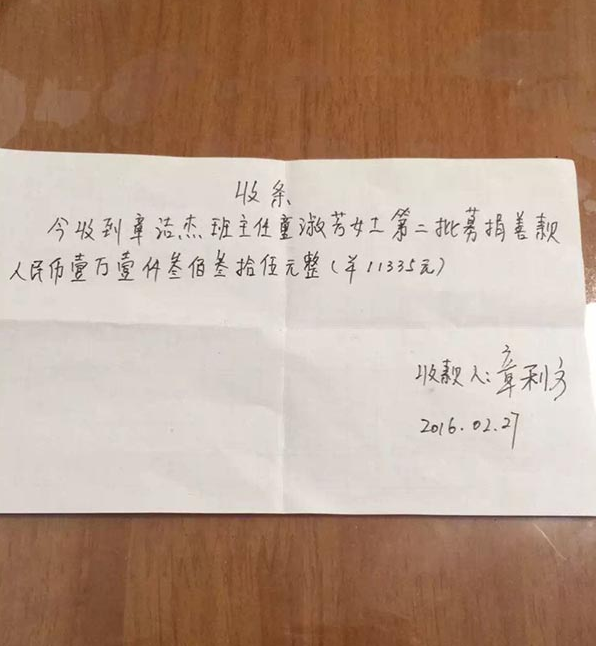 收条
今收到章洁杰班主任童淑芳女士第二批募捐善款
人民币壹万壹仟叁佰叁拾伍元整(¥11335元)
收款人:章利方
2016.02.27